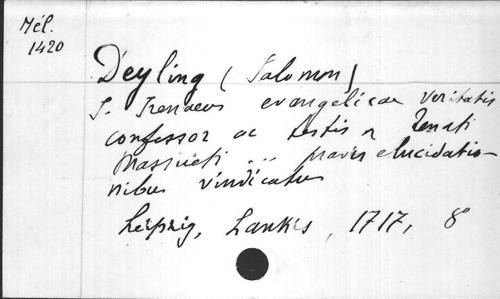 Mél.
1420
Deyling (Salomon)
S. Irenaeus evangelicae veritatis
confessor ac testis a Renati
Massueti ... pravis elucidatio-
nibus vindicatus
Leipzig, Lankis, 1717, 8°